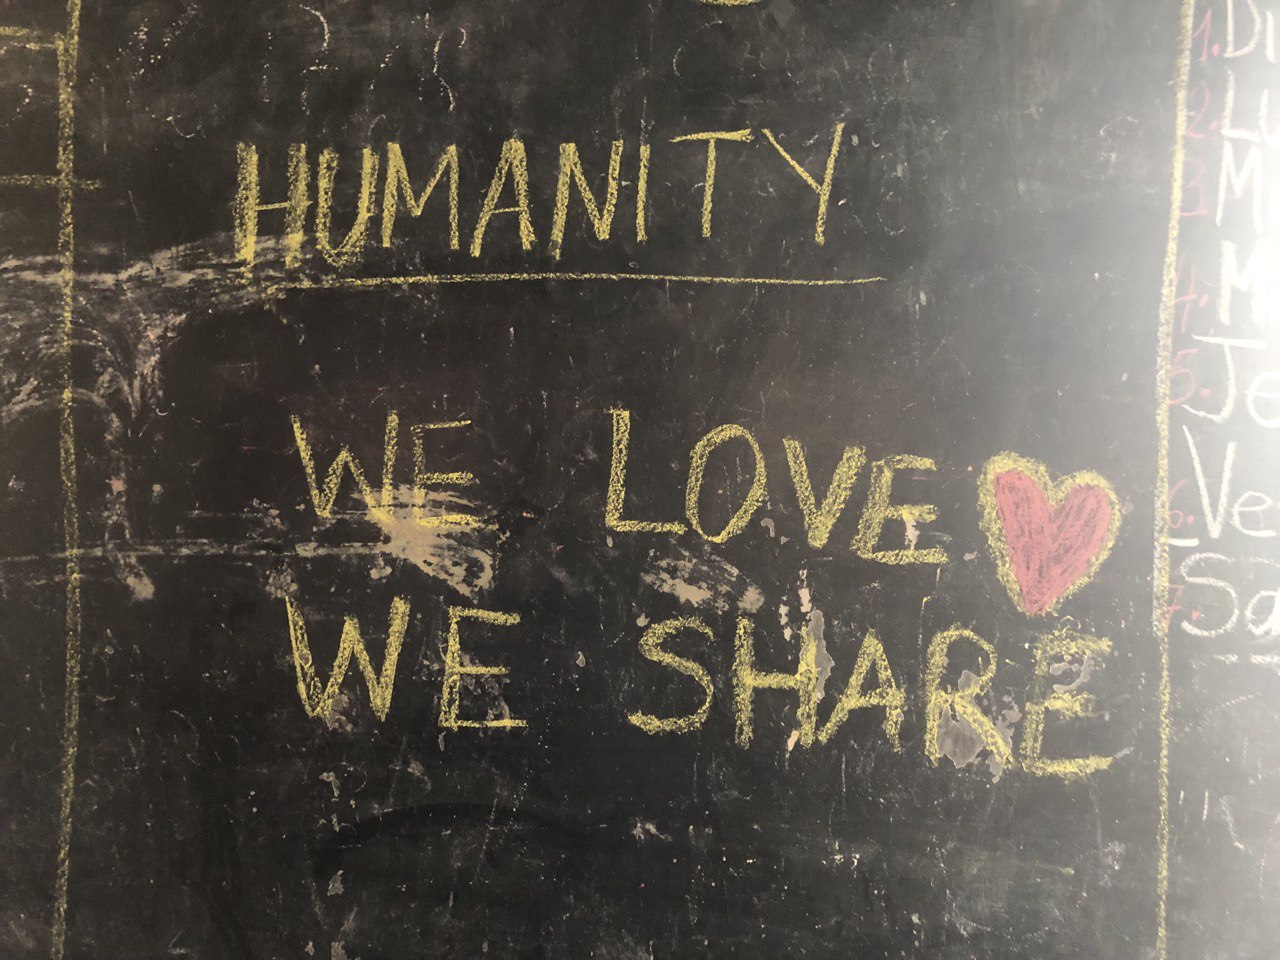 HUMANITY
WE LOVE
WE SHARE
1. Di
2. Lu
3. M
4. M
5. Je
6. Ve
7. Sa